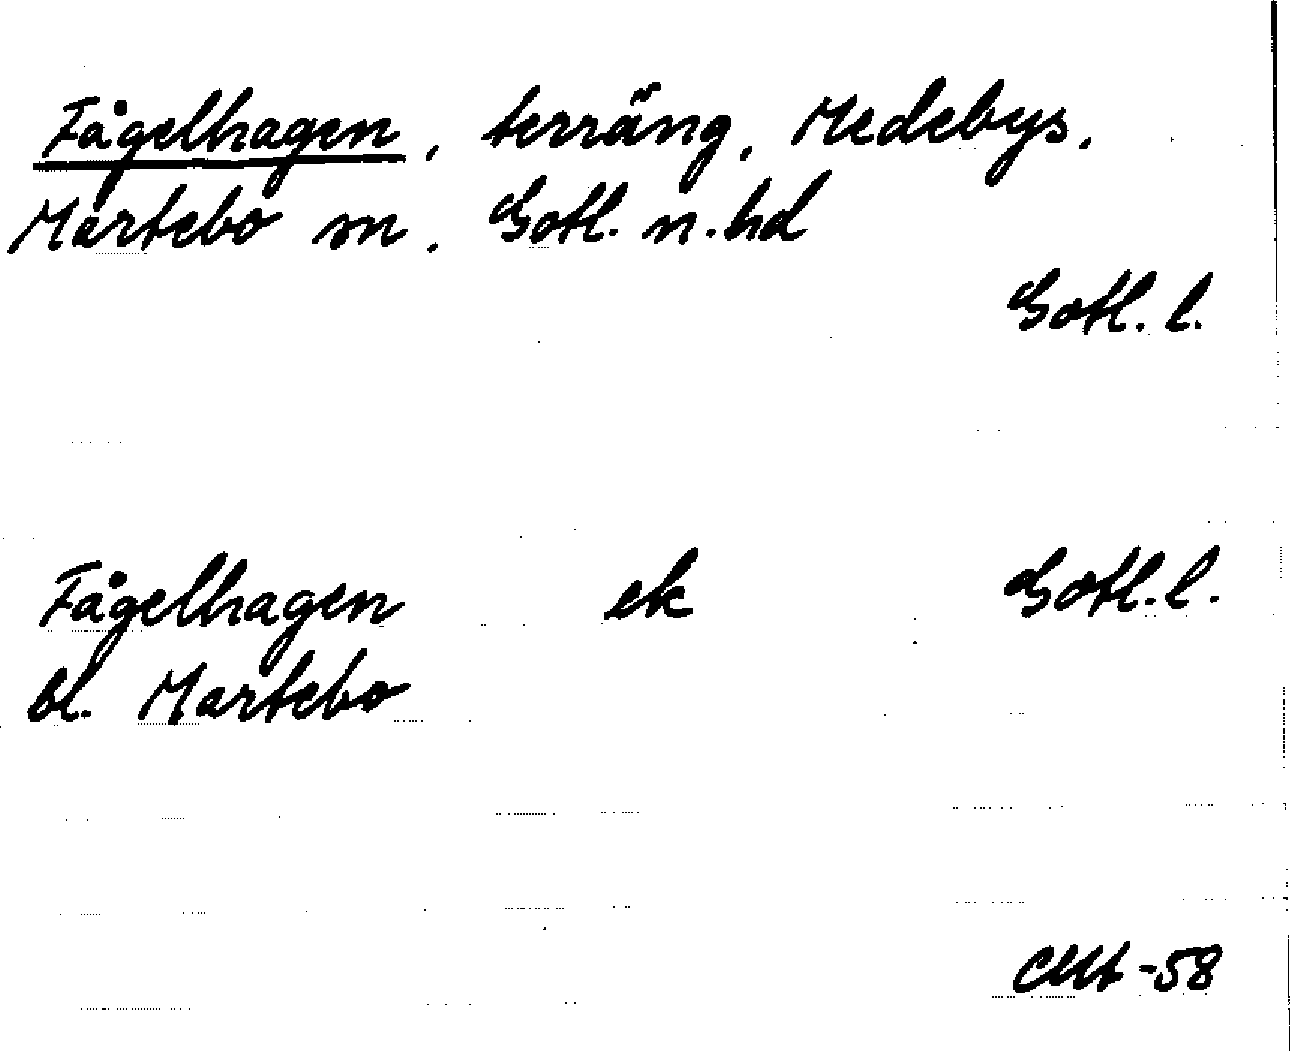 Fågelhagen, terräng, Medebys,
Martebo sn, Gotl. n. hd
Gotl. l.
Fågelhagen ek Gotl. l.
bl. Martebo
-58